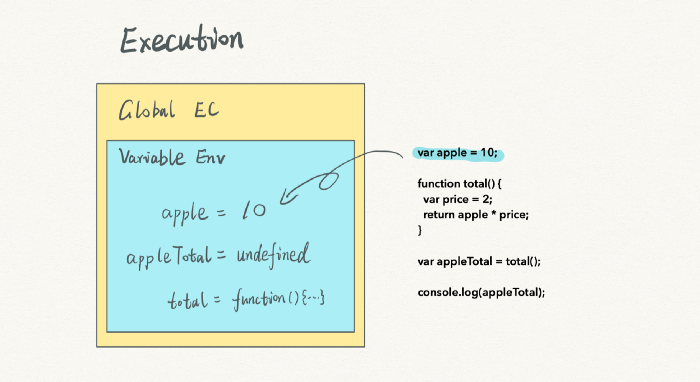 Execution
Global EC
Variable Env
apple = 10
appleTotal = undefined
total = function(){...}
var apple = 10;
function total() {
var price = 2;
return apple * price;
}
var appleTotal = total();
console.log(appleTotal);